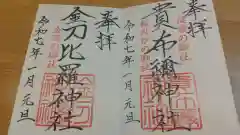 奉拝
貴布禰神社
令和七年一月元旦
奉拝
金刀比羅神社
令和七年一月元旦